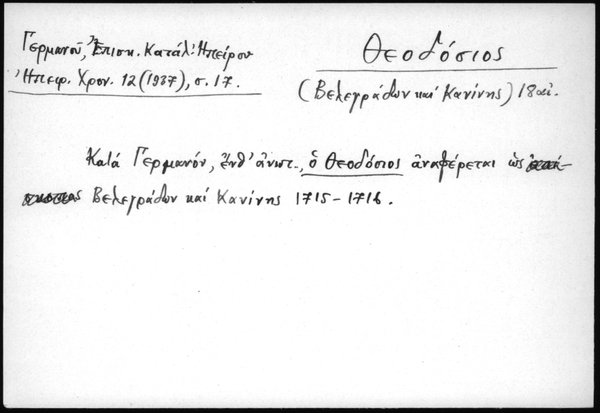 Γερμανοῦ, Ἐπισκ. Κατάλ. Ἠπείρου
Ἠπειρ. Χρον. 12 (1937), σ. 17.
Θεοδόσιος
(Βελεγράδων καί Κανίνης) 18 αἰ.
Κατά Γερμανόν, ἔνθ' ἀνωτ., ὁ Θεοδόσιος ἀναφέρεται ὡς
Βελεγράδων καί Κανίνης 1715 - 1716.